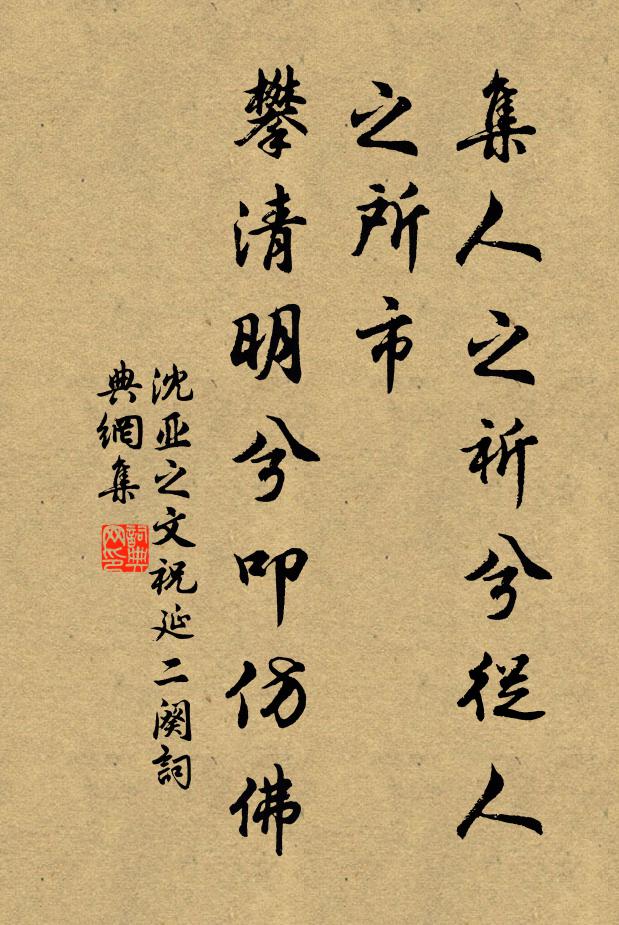 集人之祈兮從人
之所市
攀清明兮叩仿佛
沈亚之文祝延二闋詞
典網集
詞典
网印